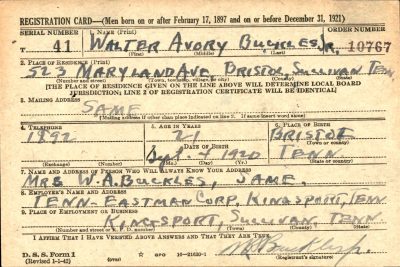 REGISTRATION CARD—(Men born on or after February 17, 1897 and on or before December 31, 1921)
SERIAL NUMBER 1. NAME (Print) ORDER NUMBER
T 41 WALTER AVORY BUCKLES, JR. 10767
(First) (Middle) (Last)
2. PLACE OF RESIDENCE (Print)
523 MARYLAND AVE BRISTOL SULLIVAN TENN.
(Number and street) (Town, township, village, or city) (County) (State)
[THE PLACE OF RESIDENCE GIVEN ON THE LINE ABOVE WILL DETERMINE LOCAL BOARD
JURISDICTION; LINE 2 OF REGISTRATION CERTIFICATE WILL BE IDENTICAL]
3. MAILING ADDRESS
SAME
[Mailing address if other than place indicated on line 2. If same insert word same]
4. TELEPHONE 5. AGE IN YEARS 6. PLACE OF BIRTH
1892 21 BRISTOL
DATE OF BIRTH (Town or county)
Sept. 1920 TENN
(Exchange) (Number) (Mo.) (Day) (Yr.) (State or country)
7. NAME AND ADDRESS OF PERSON WHO WILL ALWAYS KNOW YOUR ADDRESS
MRS W.A. BUCKLES, SAME.
8. EMPLOYER'S NAME AND ADDRESS
TENN-EASTMAN CORP, KINGSPORT, TENN
9. PLACE OF EMPLOYMENT OR BUSINESS
KINGSPORT, SULLIVAN, TENN.
(Number and street or R. F. D. number) (Town) (County) (State)
I AFFIRM THAT I HAVE VERIFIED ABOVE ANSWERS AND THAT THEY ARE TRUE.
D. S. S. Form 1
(Revised 1-5-42) (over) 16—21630-1